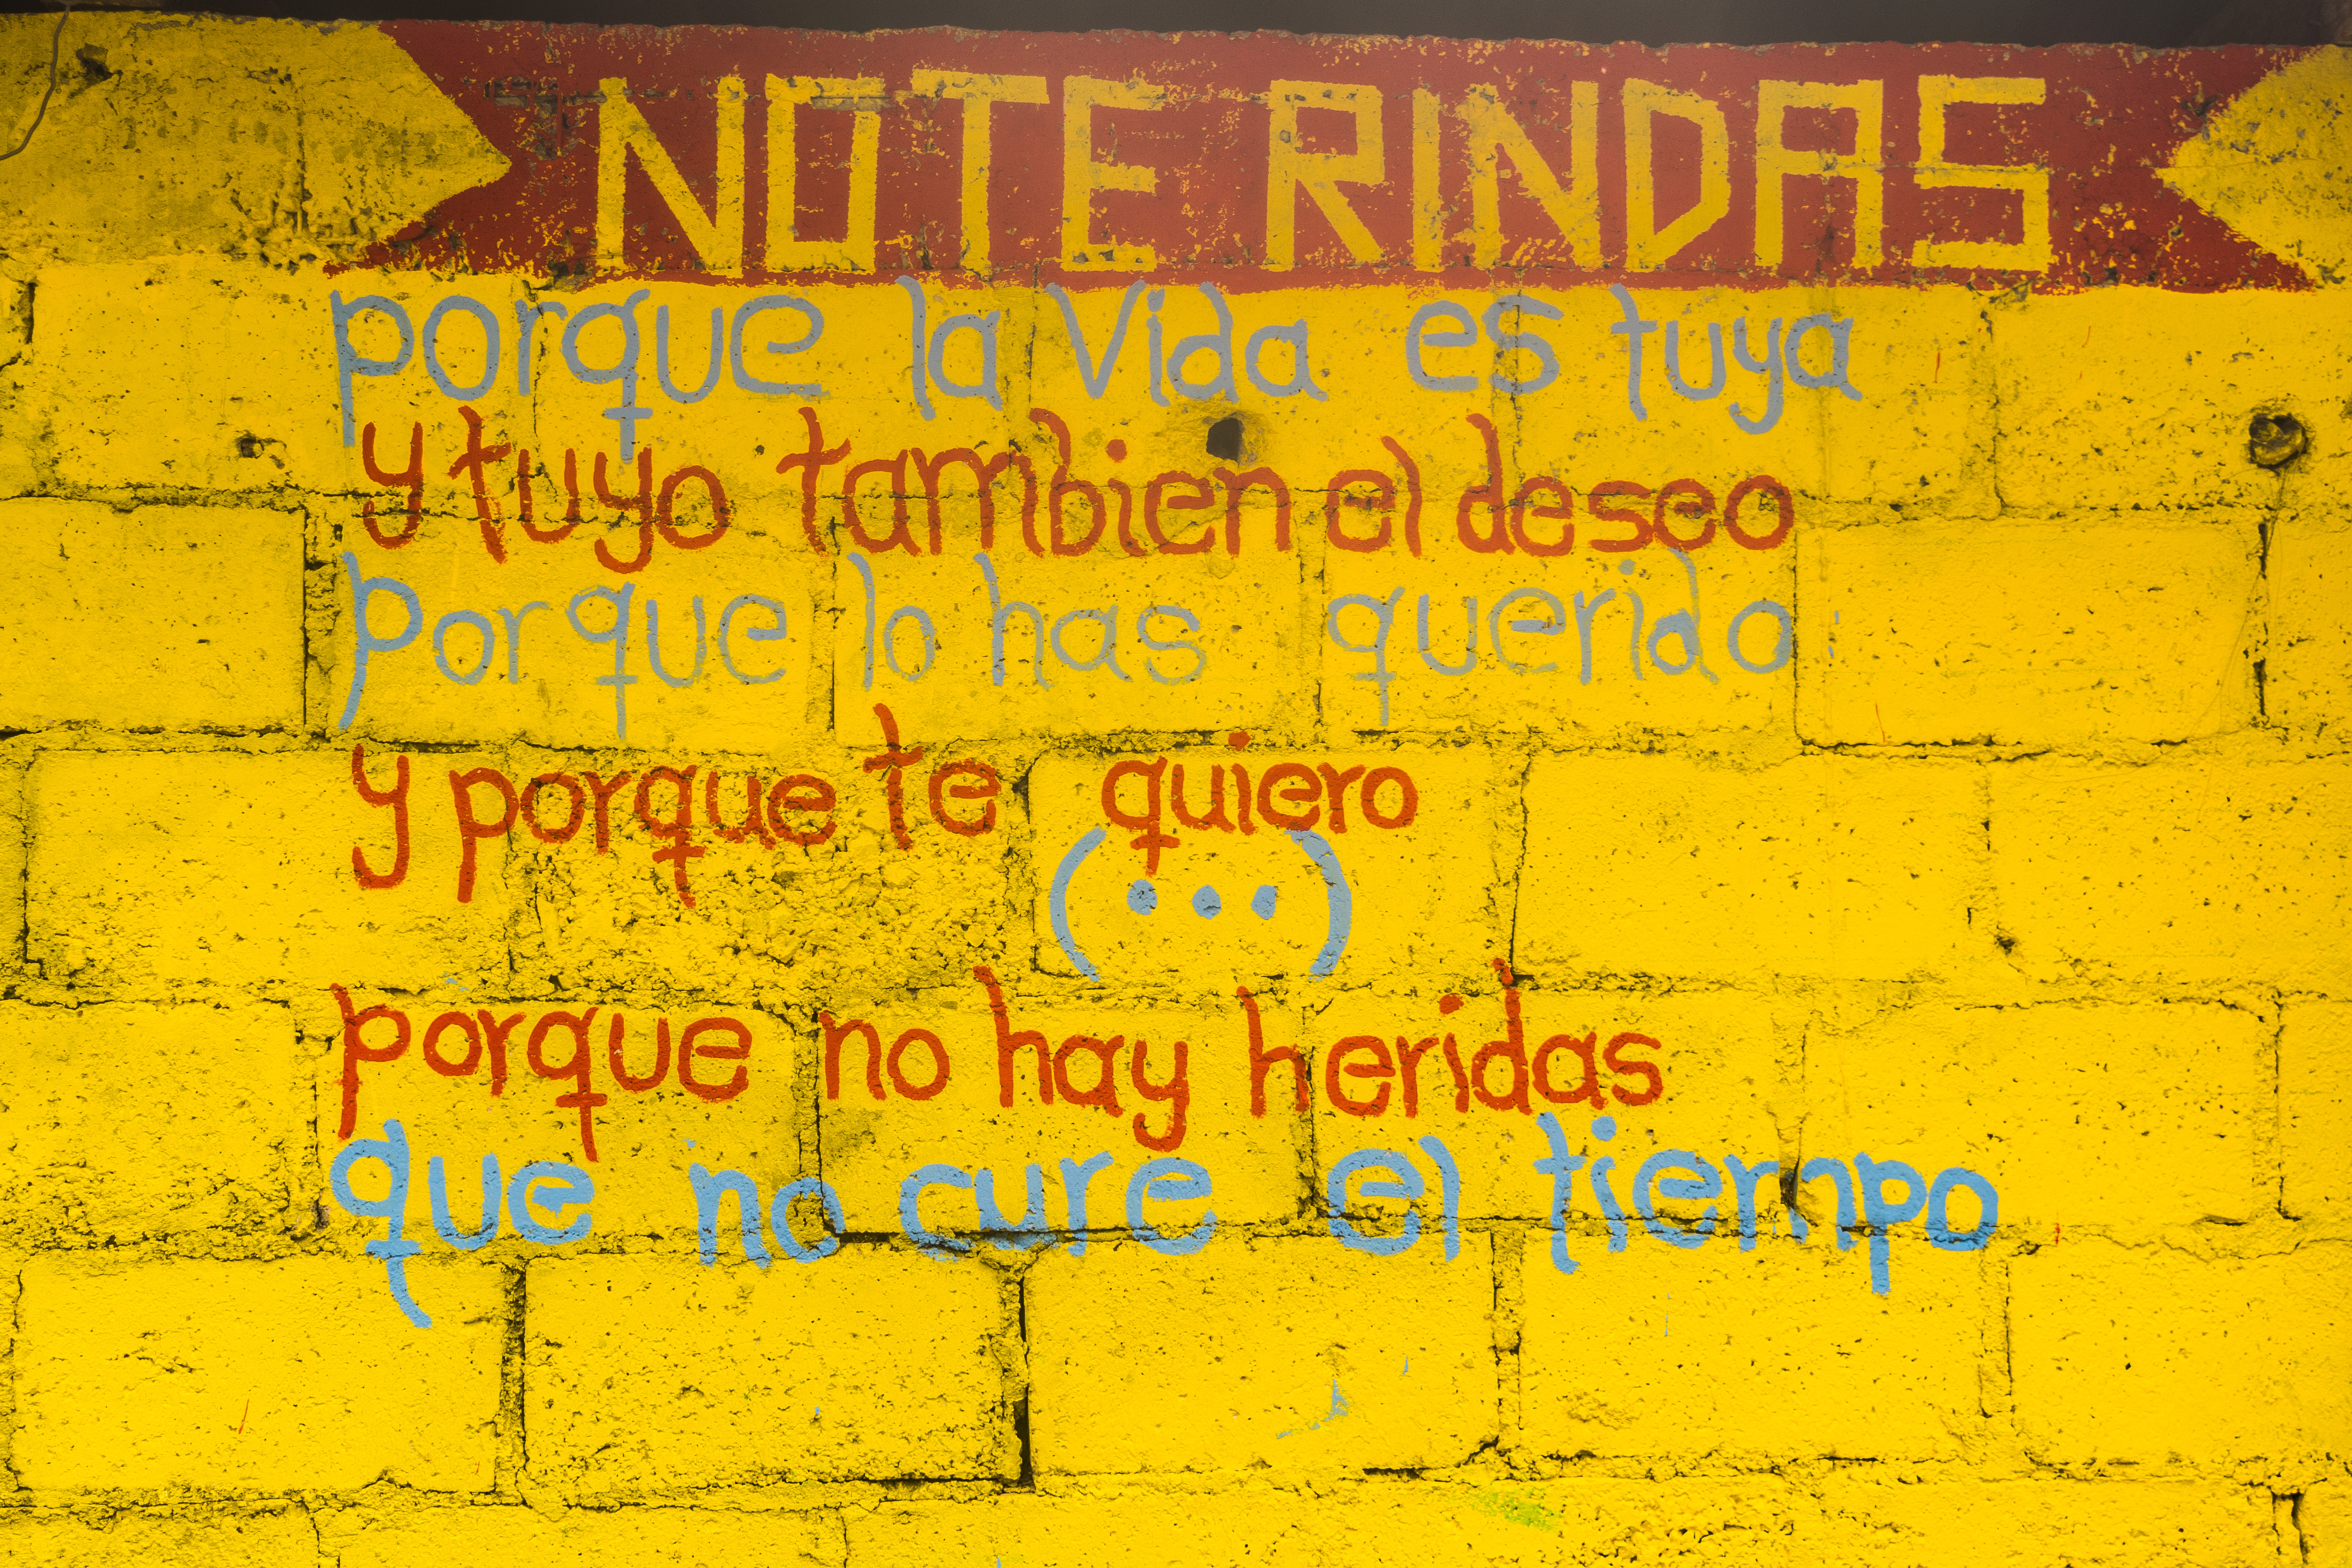 NO TE RINDAS
porque la Vida es tuya
y tuyo tambien el deseo
porque lo has querido
y porque te quiero
(...)
porque no hay heridas
que no cure el tiempo